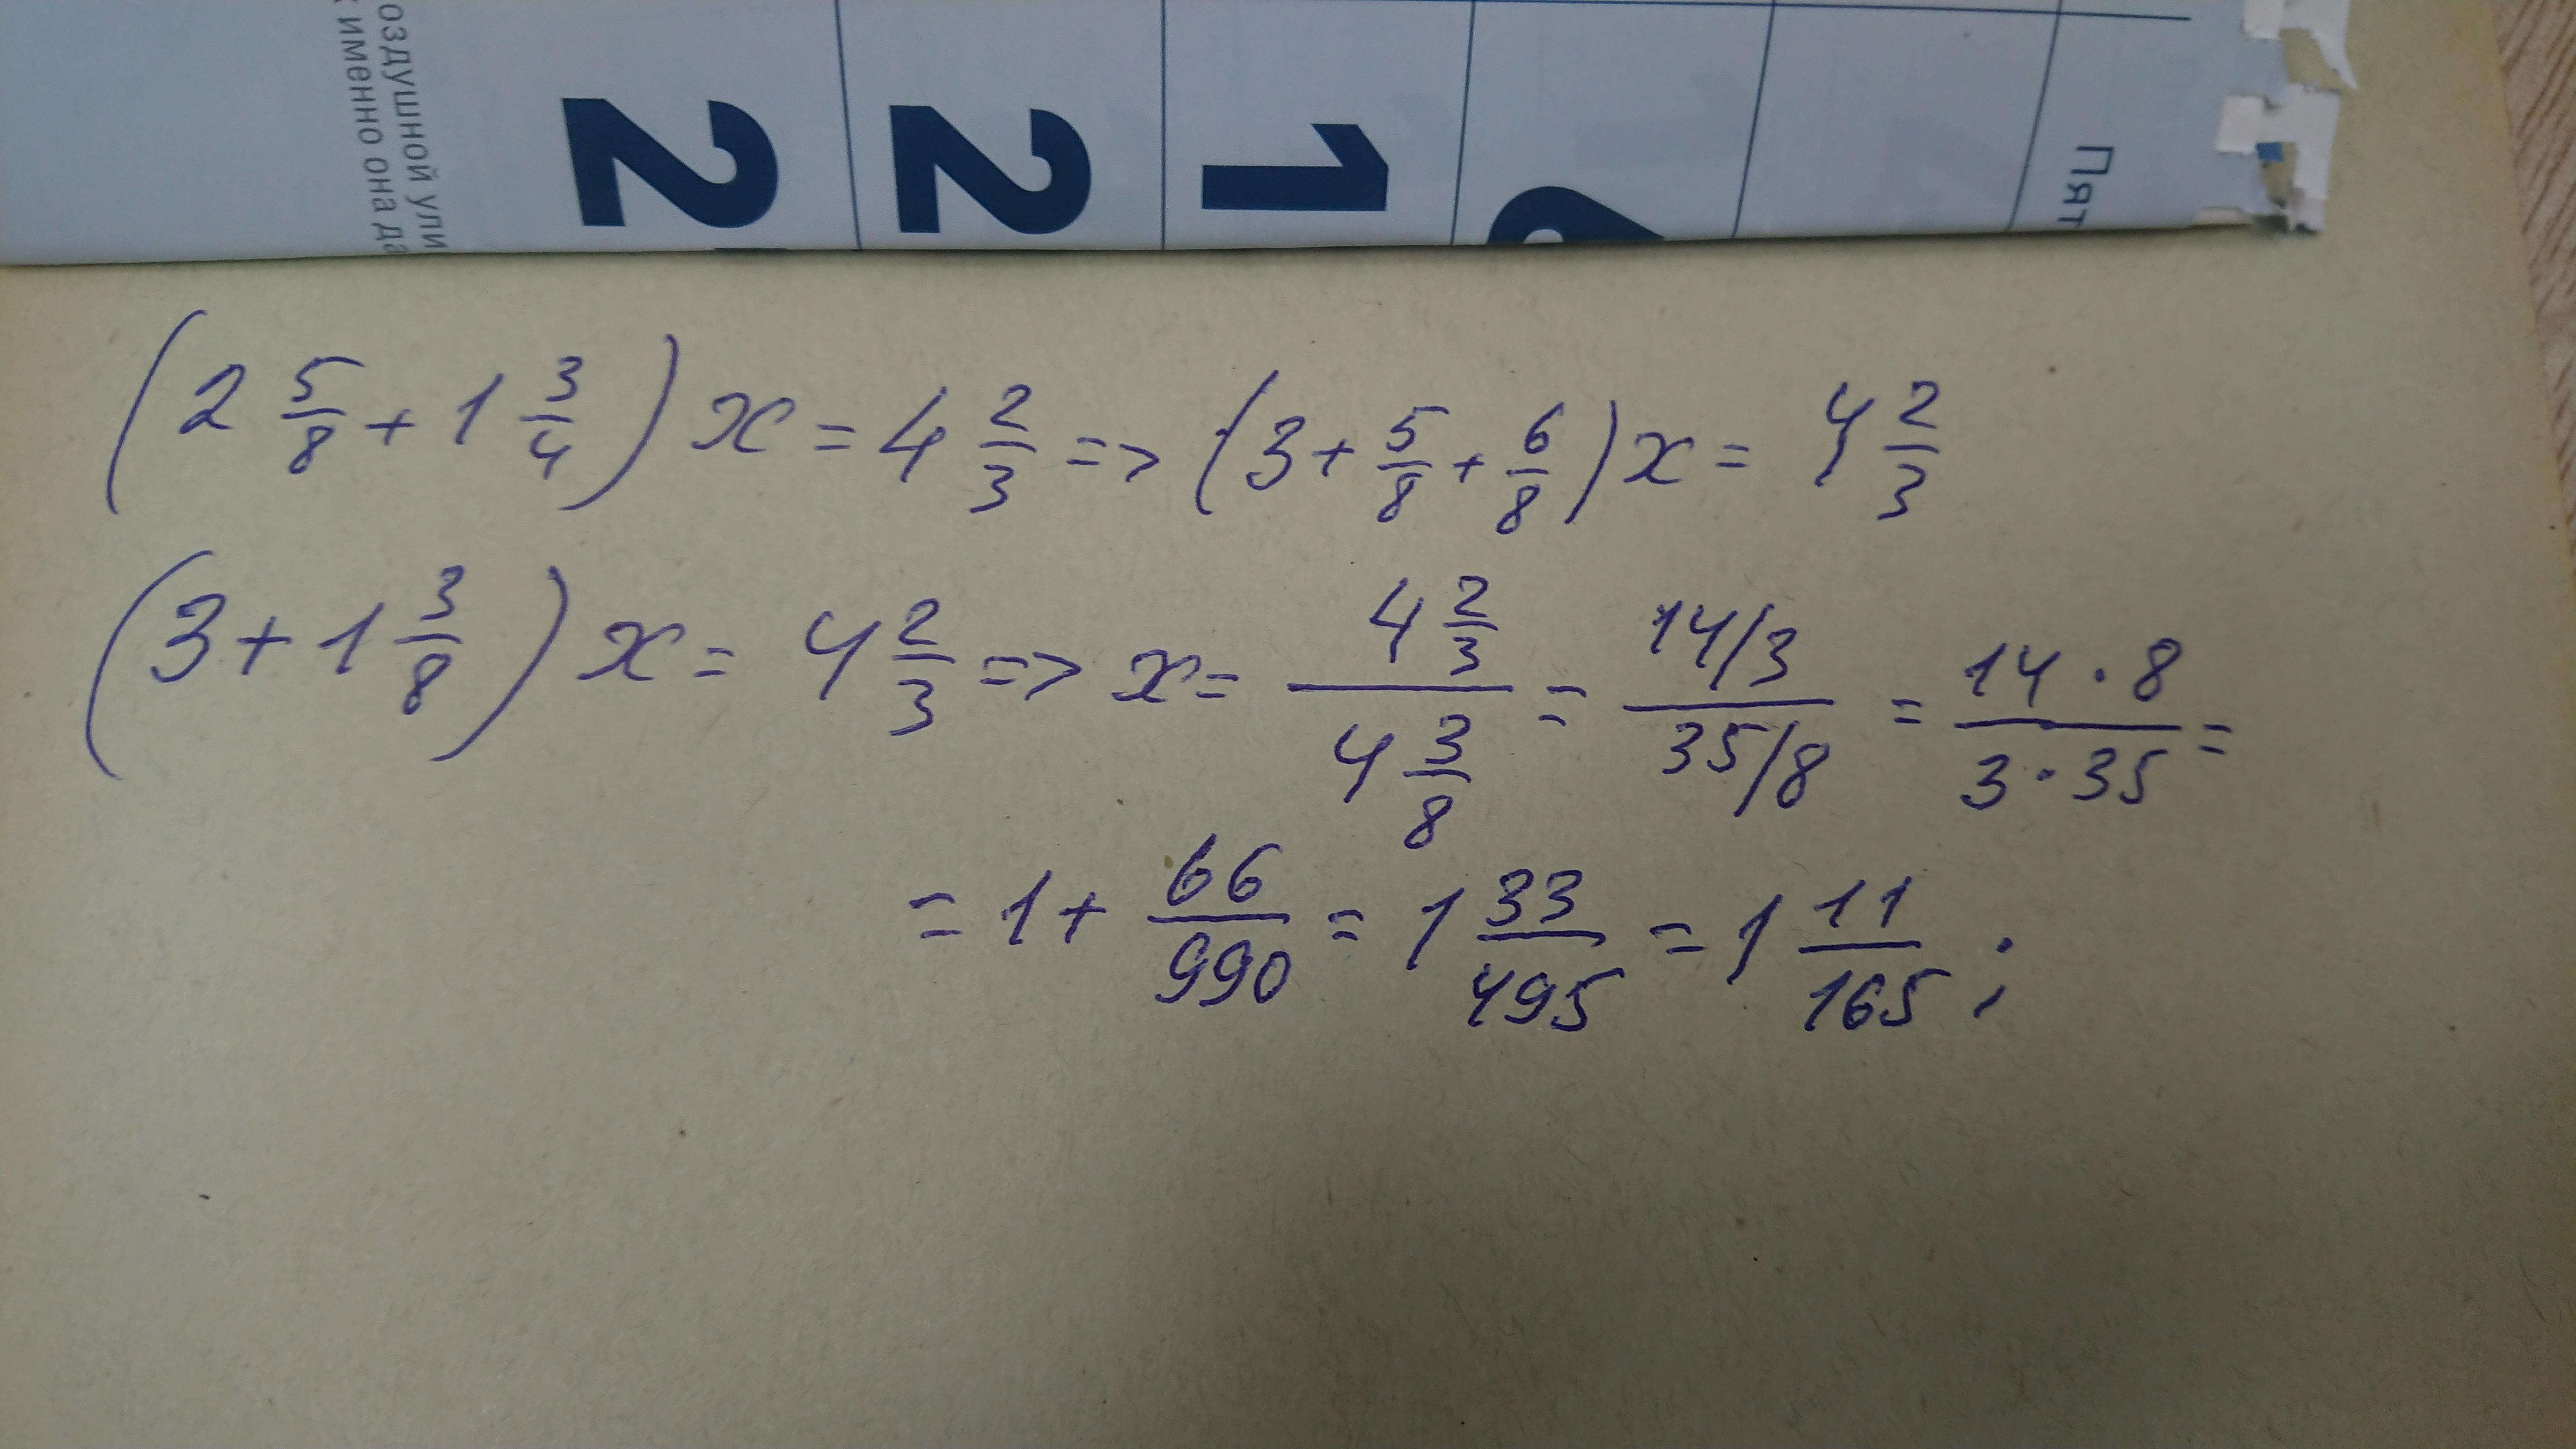 оздушной ули
именно она да
2 2 1
Пят
(2 5/8 + 1 3/4) x = 4 2/3 => (3 + 5/8 + 6/8) x = 4 2/3
(3 + 1 3/8) x = 4 2/3 => x = (4 2/3)/(4 3/8) = (14/3)/(35/8) = (14 · 8)/(3 · 35) =
= 1 + 66/990 = 1 33/495 = 1 11/165 ;